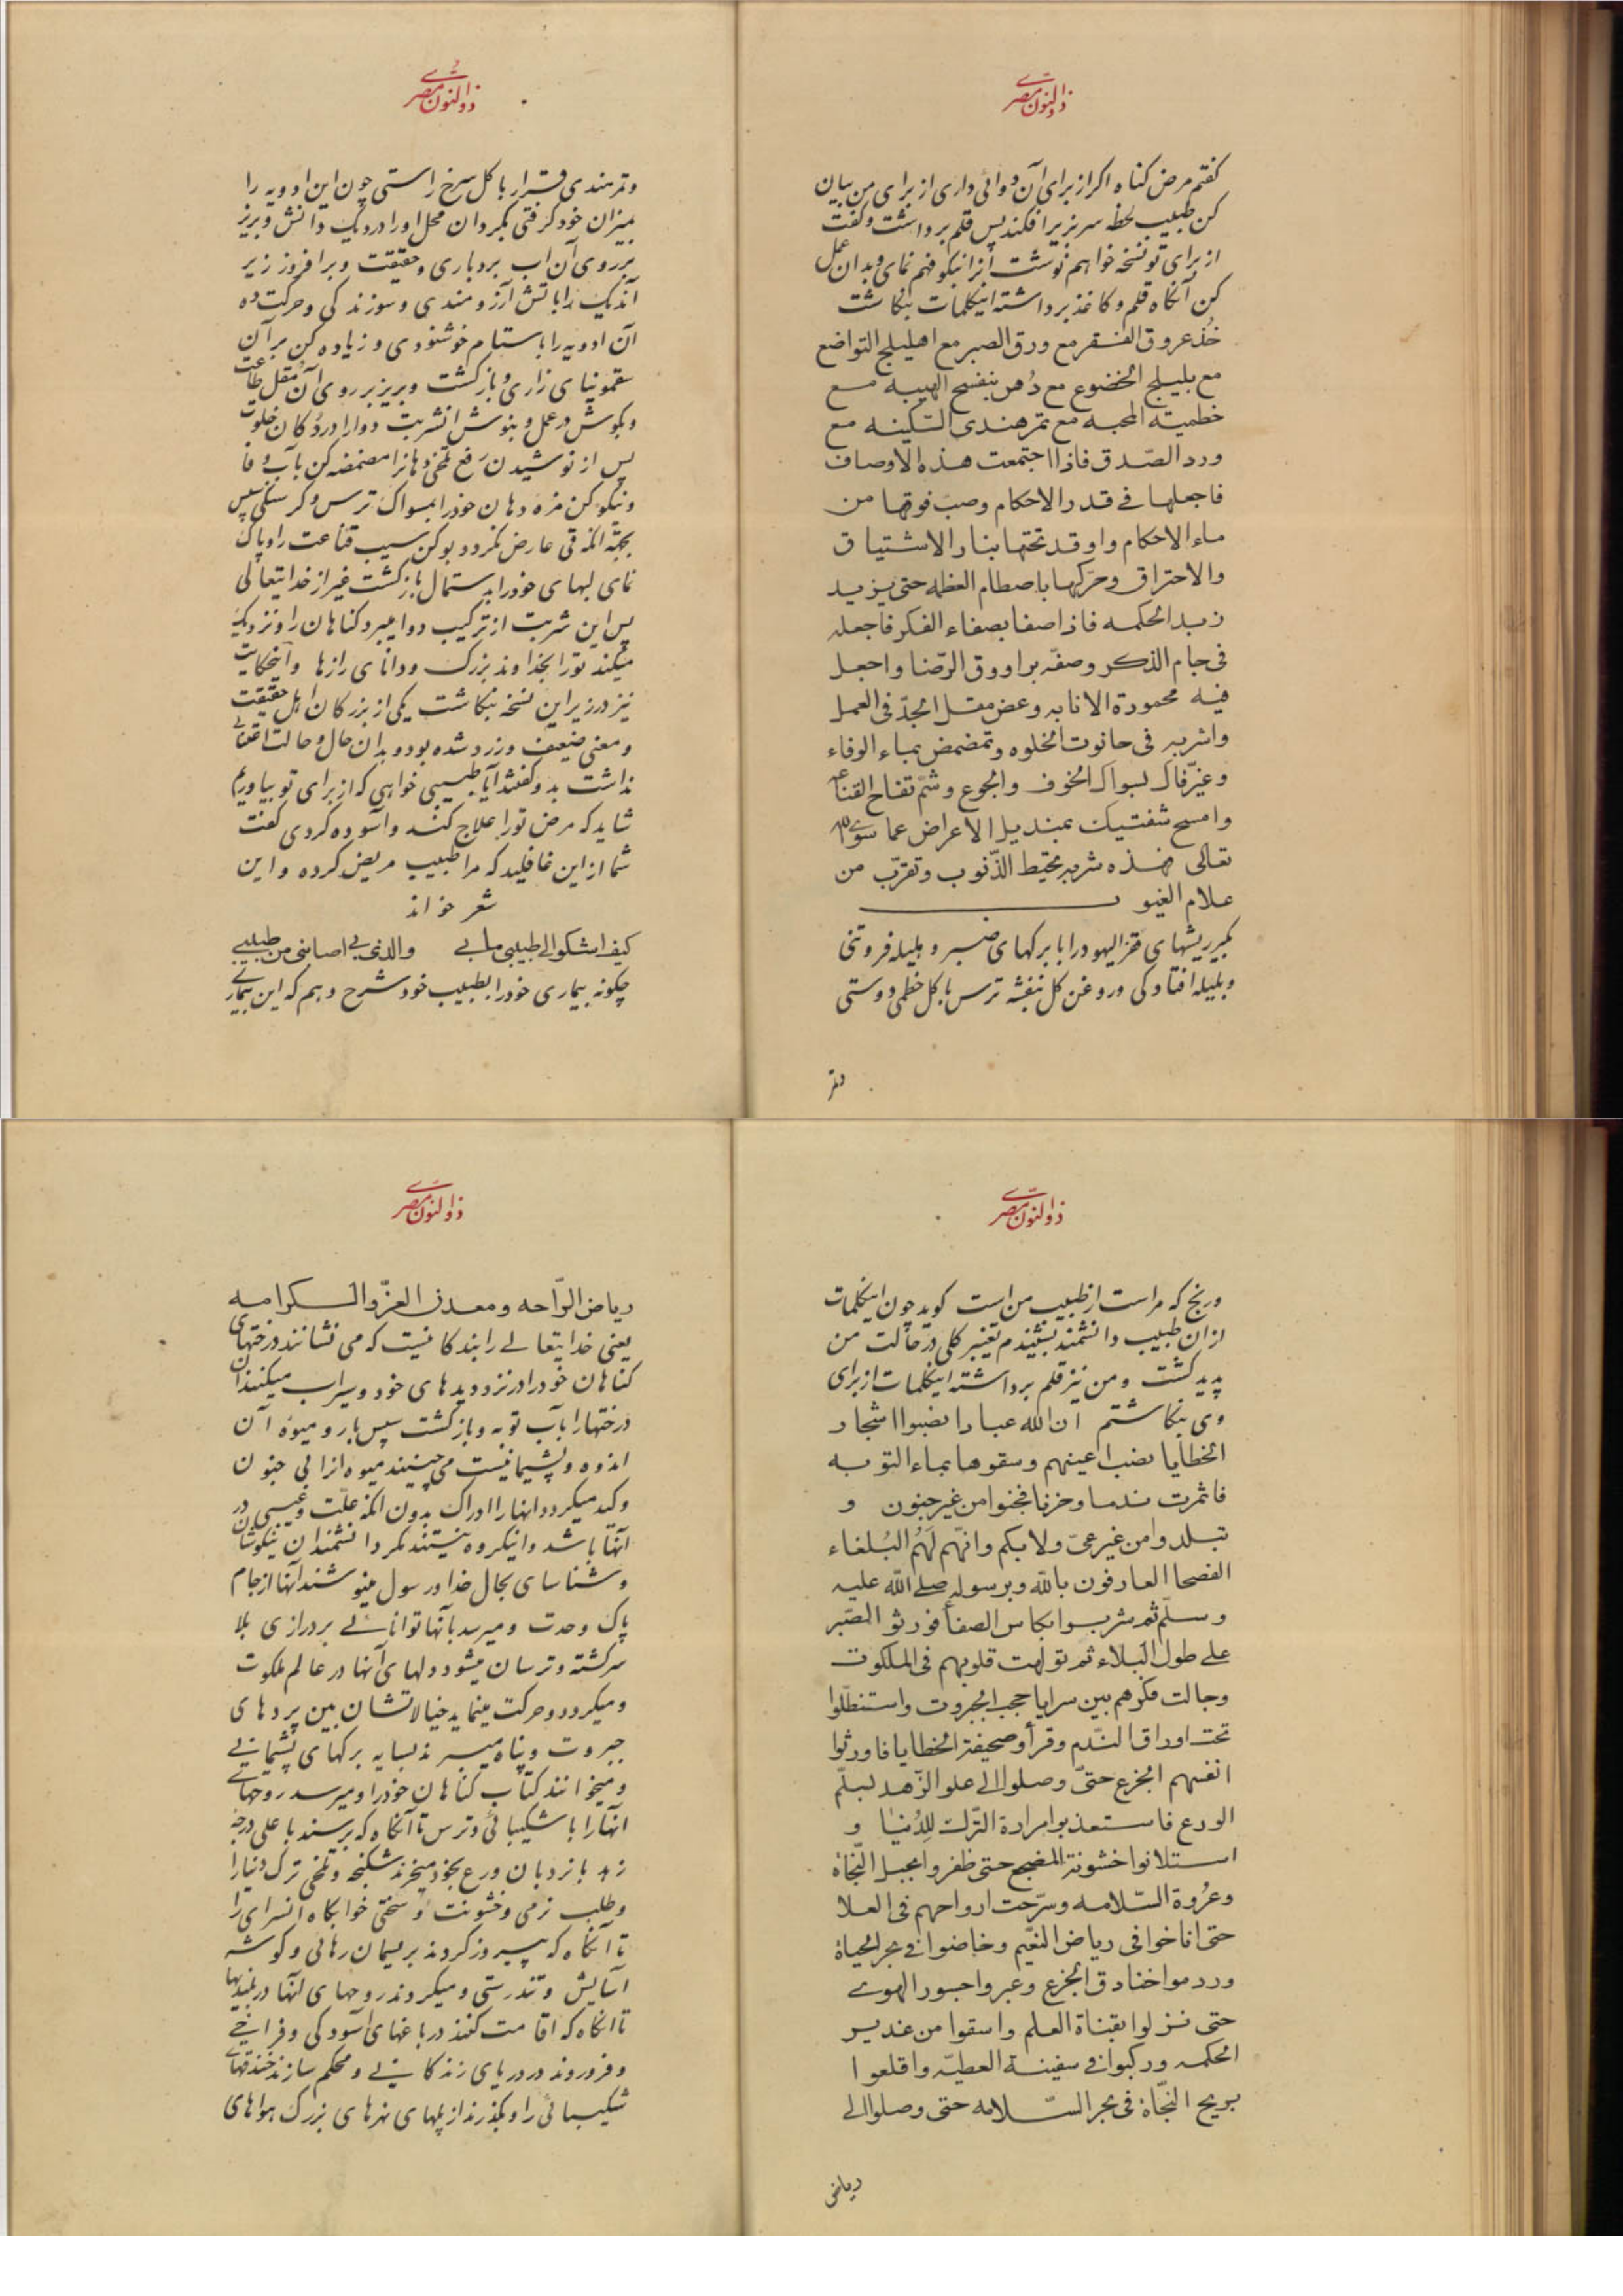 ذوالنون مصری
کفتم مرض کناه اکر از برای آن دوائی داری از برای من بیان
کن طبیب لحظه سر بزیر افکند پس قلم برداشت و کفت
از برای تو نسخه خواهم نوشت آنرا نیکو فهم نمای و بدان عمل
کن آنکاه قلم و کاغذ برداشته اینکلمات بنکاشت
خُذ عروق الفقر مع ورق الصبر مع اهلیلج التواضع
مع بلیلج الخضوع مع دُهن بنفسج الهیبه مع
خطمیة المحبه مع تمر هندی السّکینه مع
ورد الصّدق فاذا اجتمعت هذه الاوصاف
فاجعلها فے قدر الاحکام وصبّ فوقها من
ماء الاحکام واوقد تحتها بنار الاشتیاق
والاحتراق وحرّکها باصطام العظمه حتی یزید
زبد الحکمه فاذا صفا بصفاء الفکر فاجعله
فی جام الذکر وصفّه براووق الرّضا واجعل
فیه محمودة الانابه وعض مقل الجدّ فی العمل
واشربه فی حانوت الخلوه وتمضمض بماء الوفاء
وغیّر فاک بسواک الخوف والجوع وشمّ تفاح القناعه
وامسح شفتیک بمندیل الاعراض عما سوی الله
تعالی فهذه شربه تحیط الذّنوب وتقرّب من
علام الغیوب
بکیر ریشهای فقر الیهود را با برکهای صبر و هلیله فروتنی
و بلیله افتادکی و روغن کل بنفشه ترس با کل خطمی دوستی
وتمر
ذوالنون مصری
و تمر هندی قرار با کل سرخ راستی چون این ادویه را
بمیزان خود کرفتی بکردان محل او را در دیک دانش و بریز
بر روی آن اب بردباری و حقیقت و بر افروز زیر
آندیک را باتش آرزومندی و سوزندکی و حرکت ده
آن ادویه را باستام خوشنودی و زیاده کن بر آن
سقمونیای زاری و بازکشت و بریز بر روی آن مقل طاعت
و بکوش در عمل و بنوش انشربت دوا را در دکان خلوت
پس از نوشیدن رفع تلخی دهانرا مضمضه کن بآب وفا
و نیکو کن مزه دهان خود را بمسواک ترس و کرسنکی سپس
بجهة انکه قی عارض نکردد بو کن سیب قناعت را و پاک
نمای لبهای خود را بدستمال بازکشت غیر از خدایتعالی
پس این شربت از ترکیب دوا میبرد کناهان را و نزدیک
میکند تو را بخداوند بزرک و دانای رازها و اینحکایت
نیز در زیر این نسخه بنکاشت یکی از بزرکان اهل حقیقت
و معنی ضعیف و زرد شده بود و بدان حال و حالت اعتنائی
نداشت بدو کفتند آیا طبیبی خواهی که از برای تو بیاوریم
شاید که مرض تو را علاج کند و آسوده کردی کفت
شما از این غافلید که مرا طبیب مریض کرده و این
شعر خواند
کیف اشکو الی طبیبی ما بی والذی بی اصابنی من طبیبی
چکونه بیماری خود را بطبیب خود شرح دهم که این بیماری
ذوالنون مصری
و رنج که مراست از طبیب من است کوید چون اینکلمات
از ان طبیب دانشمند بشنیدم تغییر کلی در حالت من
پدید کشت و من نیز قلم برداشته اینکلمات از برای
وی بنکاشتم ان الله عبادا نصبوا اشجار
الخطایا نصب اعینهم وسقوها بماء التوبه
فاثمرت ندما وحزنا فجنوا من غیر جنون و
تبلدوا من غیر عیّ ولا بکم وانّهم لَهُم البُلغاء
الفصحا العارفون بالله وبرسوله صلی الله علیه
وسلّم ثم شربوا بکاس الصفا فورثوا الصّبر
علی طول البلاء ثم تولهت قلوبهم فی الملکوت
وجالت فکرهم بین سرایا حجب الجبروت واستظلّوا
تحت اوراق النّدم وقرأو صحیفة الخطایا فاورثوا
انفسهم الجزع حتیّ وصلوا الی علو الزّهد لسلّم
الورع فاستعذبوا مرارة التّرک لِلدُنیا و
استلانوا خشونة المضجع حتی ظفروا بحبل النّجاة
وعُروة السّلامه وسرّحت ارواحهم فی العلا
حتی اناخوا فی ریاض النعّیم وخاضوا فی بحر الحیاة
وردموا خنادق الجزع وعبروا جسور الهوی
حتی نزلوا بقناة العلم واسقوا من غدیر
الحکمه ورکبوا فی سفینة العطیّه واقلعوا
بریح النّجاة فی بحر السّلامه حتی وصلوا الی
ریاض
ذوالنون مصری
ریاض الرّاحه ومعدن العزّ والکرامه
یعنی خدایتعالی را بندکانیست که می نشانند درختهای
کناهان خود را در نزد دیدهای خود و سیراب میکنند آن
درختها را بآب توبه و بازکشت سپس بار و میوه آن
اندوه و پشیمانیست می چینند میوه انرا بی جنون
و کید میکردد انها را ادراک بدون انکه علّت و عیبی در
آنها باشد و اینکروه نیستند مکر دانشمندان نیکوشان
و شناسای بجال خدا و رسول مینوشند آنها از جام
پاک وحدت و میرسد بآنها توانائی بر درازی بلا
سرکشته و ترسان میشود دلهای آنها در عالم ملکوت
و میکردد و حرکت مینماید خیالاتشان بین پردهای
جبروت و پناه میبرند بسایه برکهای پشیمانی
و میخوانند کتاب کناهان خود را و میرسد روحهای
انها را با شکیبائی و ترس تا آنکاه که برسند با علی درجه
زهد بانردبان ورع بخود میخرند شکنجه و تلخی ترک دنیا را
و طلب نرمی و خشونت و سختی خوابکاه انسرای را
تا آنکاه که پیروز کردند بریسمان رهائی و کوشه
آسایش و تندرستی و میکروند روحهای آنها در بلندیها
تا انکاه که اقامت کنند در باغهای آسودکی و فراخی
و فرو روند در دریای زندکانی و محکم سازند خندقهای
شکیبائی را و بکذرند از پلهای نهرهای بزرک هواهای